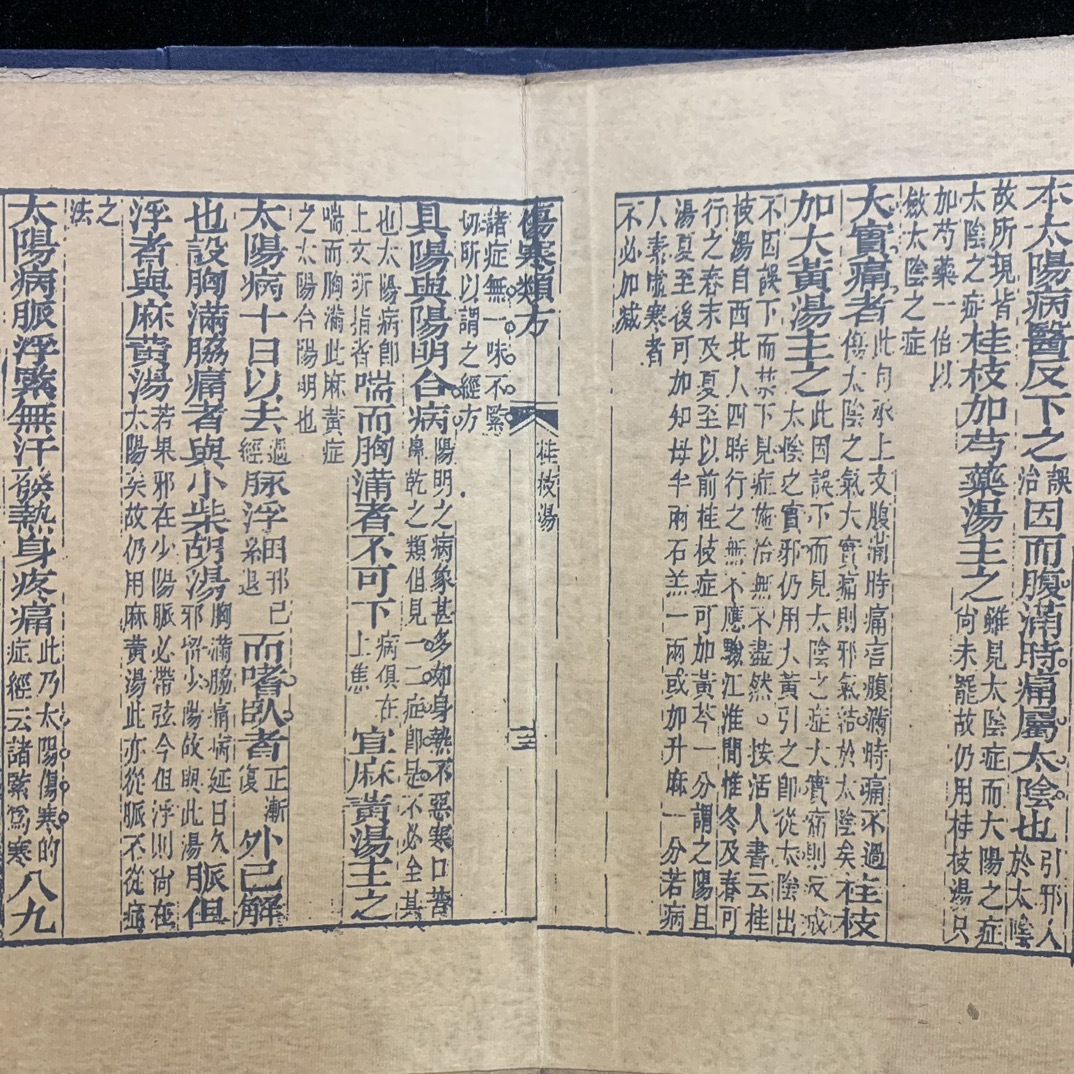 本太陽病醫反下之誤治因而腹滿時痛屬太陰也引邪入於太陰
故所現皆太陰之症桂枝加芍藥湯主之雖見太陰症而大陽之症尚未罷故仍用桂枝湯只
加芍藥一倍以斂太陰之症
大實痛者此句承上文腹滿時痛言腹滿時痛不過傷太陰之氣大實痛則邪氣結於太陰矣桂枝
加大黃湯主之此因誤下而見太陰之症大實痛則反成太陰之實邪仍用大黃引之卽從太陰出
不因誤下而禁下見症施治無不盡然。按活人書云桂
枝湯自西北人四時行之無不應驗江淮間惟冬及春可
行之春末及夏至以前桂枝症可加黃芩一分謂之陽旦
湯夏至後可加知母半兩石羔一兩或加升麻一分若病
人素虛寒者
不必加減
傷寒類方 桂枝湯
諸症無一味不緊
切所以謂之經方
具陽與陽明合病陽明之病象甚多如身熱不惡寒口苦鼻乾之類但見一二症卽是不必全具
也太陽病卽上文所指者喘而胸滿者不可下病俱在上焦宜麻黃湯主之
喘而胸滿此麻黃症
之太陽合陽明也
太陽病十日以去過經脉浮細邪已退而嗜臥者正漸復外已解
也設胸滿脇痛者與小柴胡湯胸滿脇痛病延日久邪留少陽故與此湯脈但
浮者與麻黃湯若果邪在少陽脈必帶弦今但浮則尚在太陽矣故仍用麻黃湯此亦從脈不從症
之
法
太陽病脈浮緊無汗發熱身疼痛此乃太陽傷寒的症經云諸緊爲寒八九